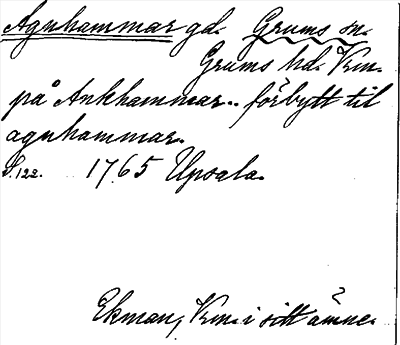 Agnhammar gd. Grums sn.
Grums hd. Vrm.
på Ankhammar.. förbytt til
agnhammar.
S.122. 1765 Upsala.
Ekman, Vrm. i sitt ämne.